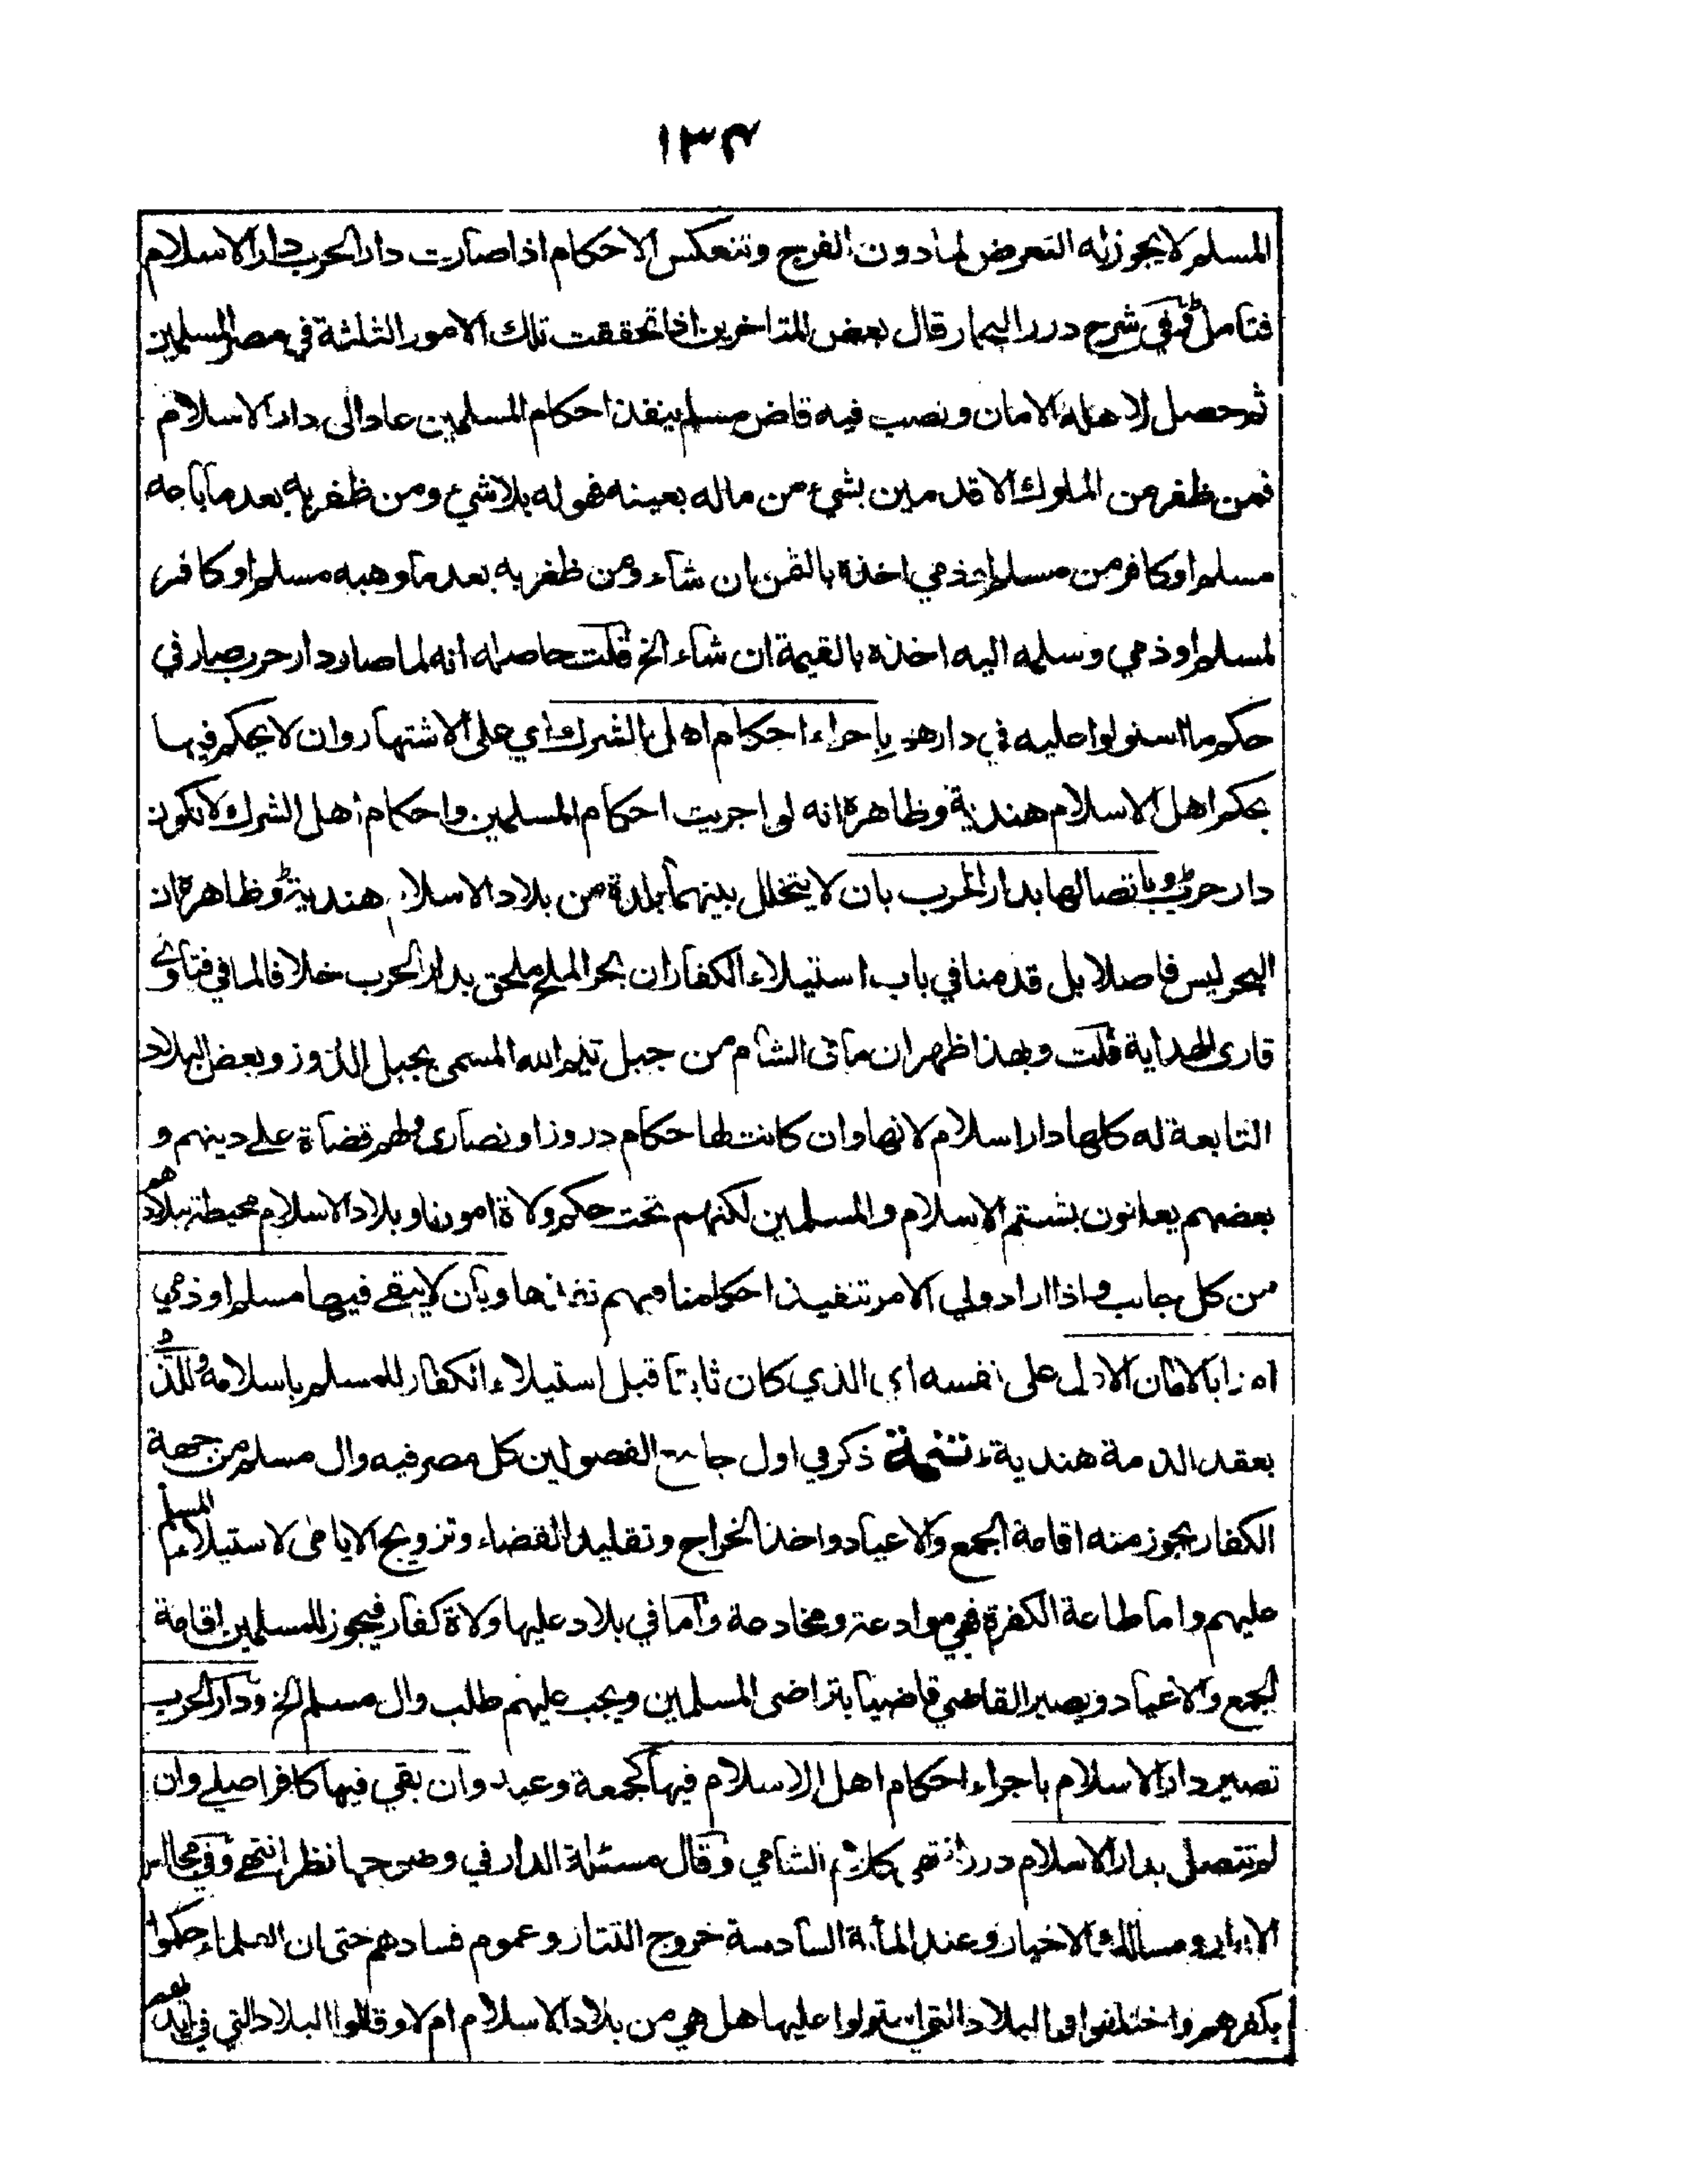 ۱۳۴
المسلم لا يجوز له التعرض لما دون الفرج وتنعكس الاحكام اذا صارت دار الحرب دار الاسلام
فتامل وفي شرح درر البحار قال بعض المتاخرين اذا تحققت تلك الامور الثلثة في مصر المسلمين
ثم حصل لاهله الامان ونصب فيه قاض مسلم ينفذ احكام المسلمين عاد الى دار الاسلام
فمن ظفر من الملوك الاقدمين بشيء من ماله بعينه فهو له بلا شيء ومن ظفر به بعد ما باعه
مسلم او كافر من مسلم او ذمي اخذه بالثمن ان شاء ومن ظفر به بعد ما وهبه مسلم او كافر
لمسلم او ذمي وسلمه اليه اخذه بالقيمة ان شاء الخ قلت حاصله انه لما صار دار حرب صار في
حكم ما استولوا عليه في دارهم باجراء احكام اهل الشرك اي على الاشتهار وان لا يحكم فيها
بحكم اهل الاسلام هندية وظاهره انه لو اجريت احكام المسلمين واحكام اهل الشرك لا تكون
دار حرب وباتصالها بدار الحرب بان لا يتخلل بينهما بلدة من بلاد الاسلام هندية وظاهره ان
البحر ليس فاصلا بل قدمنا في باب استيلاء الكفار ان بحر الملح ملحق بدار الحرب خلافا لما في فتاوى
قارى الهداية قلت وبهذا ظهر ان ما في الشام من جبل تيم الله المسمى بجبل الدروز وبعض البلاد
التابعة له كلها دار اسلام لانها وان كانت لها حكام دروز او نصارى ولهم قضاة على دينهم و
بعضهم يعلنون بشتم الاسلام والمسلمين لكنهم تحت حكم ولاة امورنا وبلاد الاسلام محيطة ببلادهم
من كل جانب واذا اراد ولي الامر تنفيذ احكامنا فيهم نفذها وبان لا يبقى فيها مسلم او ذمي
امنا بالامان الاول على نفسه اي الذي كان ثابتا قبل استيلاء الكفار للمسلم باسلامه وللذمي
بعقد الذمة هندية تتمة ذكر في اول جامع الفصولين كل مصر فيه وال مسلم من جهة
الكفار يجوز منه اقامة الجمع والاعياد واخذ الخراج وتقليد القضاء وتزويج الايامى لاستيلاء المسلم
عليهم واما طاعة الكفرة فهي موادعة ومخادعة واما في بلاد عليها ولاة كفار فيجوز للمسلمين اقامة
الجمع والاعياد ويصير القاضي قاضيا بتراضى المسلمين ويجب عليهم طلب وال مسلم الخ ودار الحرب
تصير دار الاسلام باجراء احكام اهل الاسلام فيها كجمعة وعيد وان بقي فيها كافر اصلي وان
لم تتصل بدار الاسلام درر انتهى كلام الشامي وقال مسئلة الدار في وضوحها نظر انتهى وفي مجالس
الابرار ومسالك الاخيار وعند المائة السادسة خروج التتار وعموم فسادهم حتى ان العلماء حكموا
بكفرهم واختلفوا في البلاد التي استولوا عليها هل هي من بلاد الاسلام ام لا وقالوا البلاد التي في ايديهم